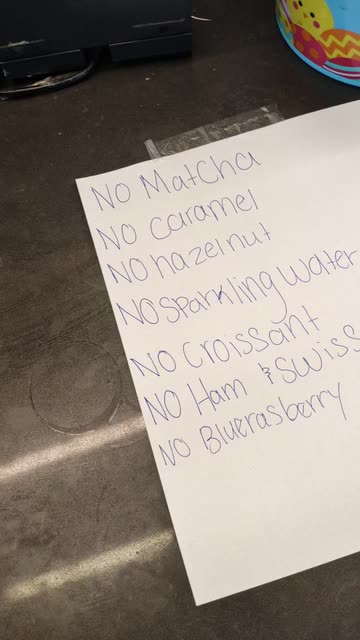 NO Matcha
NO caramel
NO hazelnut
NO sparkling water
NO Croissant
NO Ham & swiss
NO Bluerasberry